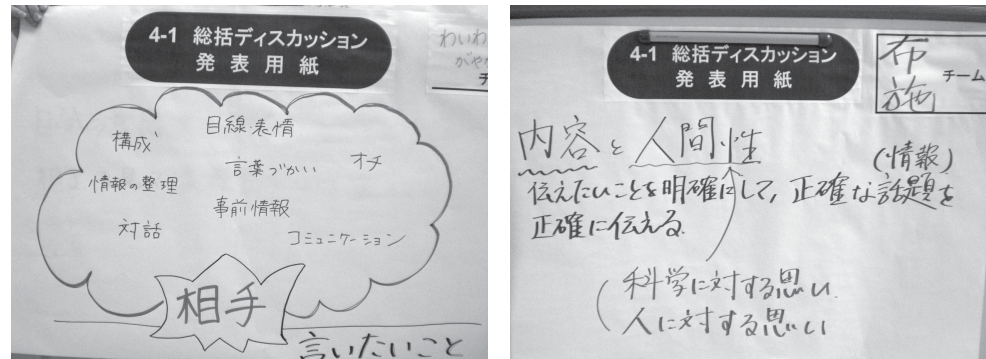 4-1 総括ディスカッション
発表用紙
わいわ
がやが
チ
目線・表情
構成
言葉づかい
オチ
情報の整理
事前情報
対話
コミュニケーション
相手
言いたいこと
4-1 総括ディスカッション
発表用紙
布施
チーム
内容と人間性
(情報)
伝えたいことを明確にして、正確な話題を
正確に伝える。
科学に対する思い
人に対する思い